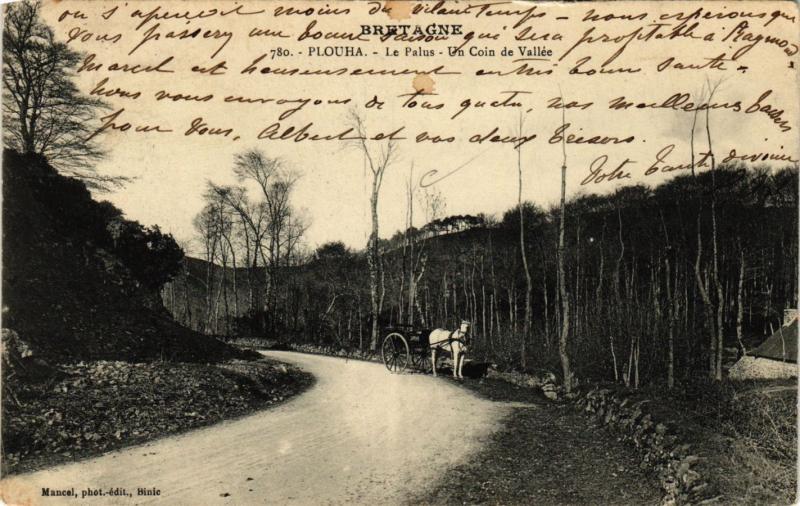 ou s'aperçoit moins du vilain temps - nous espérons que
BRETAGNE
vous passerez une bonne saison qui sera profitable à Raymond
780. - PLOUHA. - Le Palus - Un Coin de Vallée
Marcel et heureusement en très bonne santé -
nous vous envoyons de tous quatre, nos meilleurs baisers
pour vous, Albert et vos deux trésors.
Votre Tante
Mancel, phot.-édit., Binic